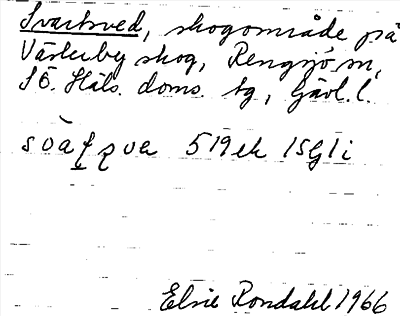 Svartsved, skogområde på
Västerby skog, Rengsjö sn,
SÖ. Häls. doms. tg, Gävl. l.
519ek 15G1i
Elsie Rondahl 1966